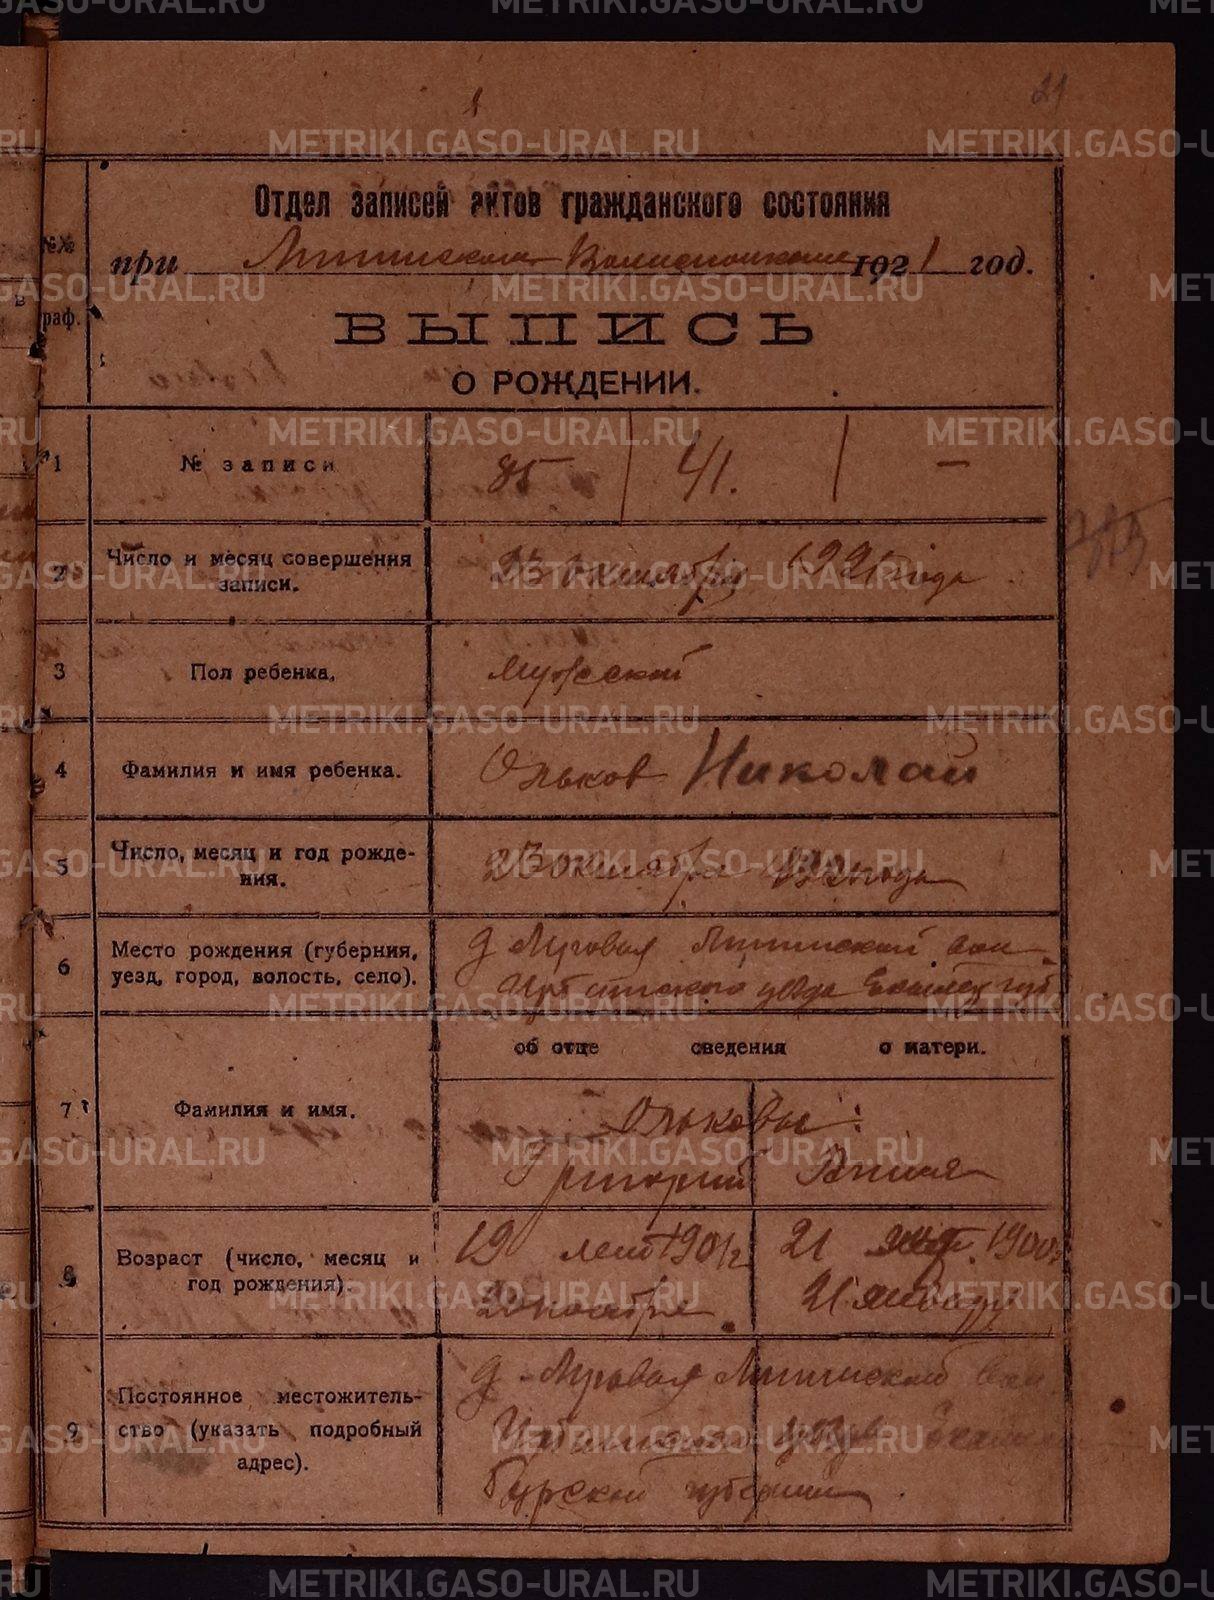 21
Отдел записей актов гражданского состояния
при Липинском Волисполкоме 1921 год.
№№
раф.
ВЫПИСЬ
О РОЖДЕНИИ.
1 № записи 85 41. —
2 Число и месяц совершения записи. 25 октября 1921 года
3 Пол ребенка. мужской
4 Фамилия и имя ребенка. Ольков Николай
5 Число, месяц и год рожде-
ния. октября 1921 года
6 Место рождения (губерния,
уезд, город, волость, село). д Луговая Липинской вол
Ирбитского уезда Екатер губ
об отце сведения о матери.
7 Фамилия и имя. Ольковы:
Григорий
8 Возраст (число, месяц и
год рождения). 19 лет 1901 г 21 лет. 1900 г
ноября 21 январу
9 Постоянное местожитель-
ство (указать подробный
адрес). д. Луговая Липинской вол.
Ирбитского уезда Екатерин
бургской губернии.
METRIKI.GASO-URAL.RU